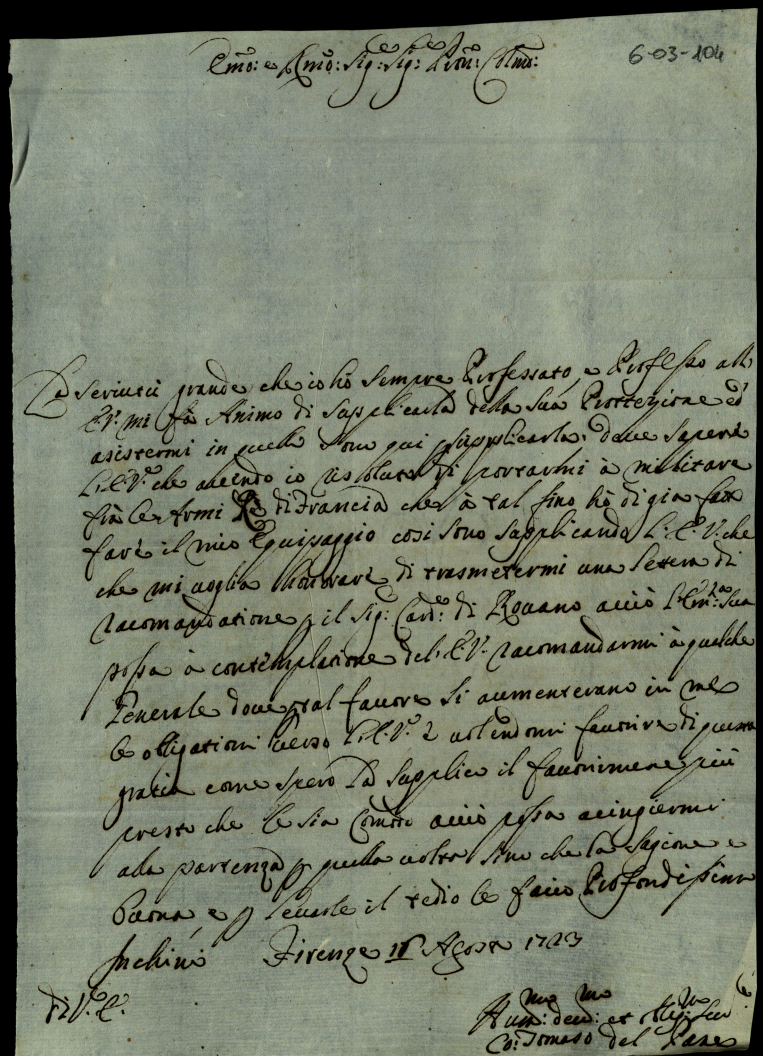 6-03-104
Emo: e Rmo: Sig:e Sig:e Pron: Colmo:
La seruitù grande che io hò sempre Professato, e Professo all
E.V. mi fà Animo di supplicarla della sua Protezione ed
asistermi in quello sono qui p supplicarla. Deue sapere
L'E.V. che auendo io risoluto di portarmi à militare
frà le Armi di Francia che à tal fino hò di gia fato
fare il mio Equipaggio cosi sono supplicando L'E.V. che
che mi uoglia honorare di trasmetermi una letera di
racomandatione p il Sig: Card: di Roano acciò l'Em:za Sua
possa à contemplatione del E.V. racomandarmi à qualche
Generale doue tal fauore si aumenterano in me
le obligationi uerso L'E.V. e uolendomi fauorire di questa
gratia come spero La supplico il fauorirmene più
presto che le sia Comodo acciò possa acingiermi
alla partenza p quella uolta sino che la stagione e
Buona, e p leuarle il tedio le faccio Profondissimi
Inchini Firenze Agosto 1723
Di V. E.
Hum:mo deu:mo et oblig:mo Ser
Co: Tomaso del Pane